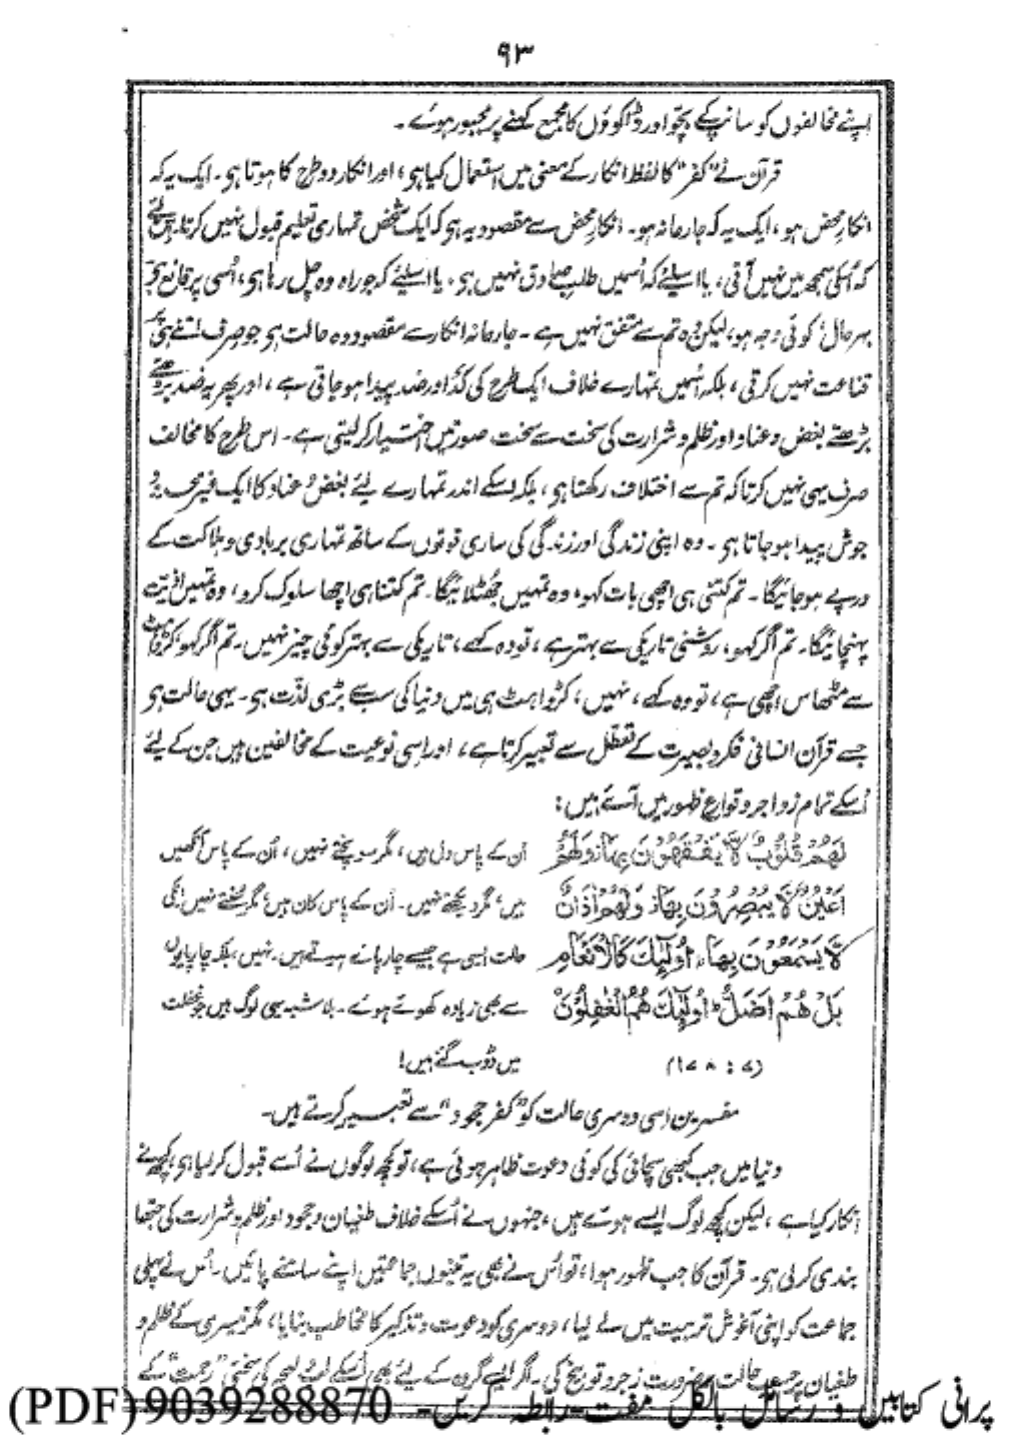 ۹۳
اپنے مخالفوں کو سانپ کے بچّو اور ڈاکوؤں کا مجمع کہنے پر مجبور ہوئے۔
قرآن نے "کفر" کا لفظ انکار کے معنی میں استعمال کیا ہی، اور انکار دو طرح کا ہوتا ہی۔ ایک یہ کہ
انکارِ محض ہو، ایک یہ کہ جارحانہ ہو۔ انکارِ محض سے مقصود یہ ہی کہ ایک شخص تمہاری تعلیم قبول نہیں کرتا۔ اس لئے
کہ اُسکی سمجھ میں نہیں آتی، یا اسلئے کہ اُسمیں طلبِ صادق نہیں ہی، یا اسلئے کہ جو راہ وہ چل رہا ہی، اُسی پر قانع ہی
بہرحال، کوئی وجہ ہو، لیکن وہ تم سے متفق نہیں ہے۔ جارحانہ انکار سے مقصود وہ حالت ہی جو صرف اتنے ہی پر
قناعت نہیں کرتی، بلکہ اُسمیں تمہارے خلاف ایک طرح کی کد اور ضد پیدا ہو جاتی ہے، اور پھر یہ ضد بڑھتے
بڑھتے بغض و عناد اور ظلم و شرارت کی سخت سے سخت صورتیں اختیار کر لیتی ہے۔ اس طرح کا مخالف
صرف یہی نہیں کرتا کہ تم سے اختلاف رکھتا ہی، بلکہ اسکے اندر تمہارے لئے بغض و عناد کا ایک غیر محدود
جوش پیدا ہو جاتا ہی۔ وہ اپنی زندگی اور زندگی کی ساری قوتوں کے ساتھ تمہاری بربادی و ہلاکت کے
درپے ہو جائیگا۔ تم کتنی ہی اچھی بات کہو، وہ تمہیں جھٹلائیگا۔ تم کتنا ہی اچھا سلوک کرو، وہ تمہیں اذیّت
پہنچائیگا۔ تم اگر کہو، روشنی تاریکی سے بہتر ہے، تو وہ کہے، تاریکی سے بہتر کوئی چیز نہیں۔ تم اگر کہو، کڑواہٹ
سے مٹھاس اچھی ہے، تو وہ کہے، نہیں، کڑواہٹ ہی میں دنیا کی سب سے بڑی لذّت ہی۔ یہی حالت ہی
جسے قرآن انسانی فکر و بصیرت کے تعطّل سے تعبیر کرتا ہے، اور اسی نوعیت کے مخالفین ہیں جن کے لئے
اُسکے تمام زواجر و قوارع ظہور میں آئے ہیں:
لَهُمْ قُلُوْبٌ لَّا يَفْقَهُوْنَ بِهَا ز وَلَهُمْ اُن کے پاس دل ہیں، مگر سوچتے نہیں، اُن کے پاس آنکھیں
اَعْيُنٌ لَّا يُبْصِرُوْنَ بِهَا ز وَلَهُمْ اٰذَانٌ ہیں، مگر دیکھتے نہیں۔ اُن کے پاس کان ہیں، مگر سُنتے نہیں، اُنکی
لَّا يَسْمَعُوْنَ بِهَا ، اُولٰٓئِكَ كَالْاَنْعَامِ حالت ایسی ہے جیسے چارپائے ہوتے ہیں۔ نہیں، بلکہ چارپایوں
بَلْ هُمْ اَضَلُّ ، اُولٰٓئِكَ هُمُ الْغٰفِلُوْنَ سے بھی زیادہ کھوئے ہوئے۔ بلاشبہ یہی لوگ ہیں جو غفلت
(۷ : ۱۷۸) میں ڈوب گئے ہیں!
مفسرین اسی دوسری حالت کو "کفر جحود" سے تعبیر کرتے ہیں۔
دنیا میں جب کبھی سچائی کی کوئی دعوت ظاہر ہوئی ہے، تو کچھ لوگوں نے اُسے قبول کر لیا ہی، کچھ نے
انکار کیا ہے، لیکن کچھ لوگ ایسے ہوئے ہیں، جنہوں نے اُسکے خلاف طغیان و جحود اور ظلم و شرارت کی جتھا
بندی کر لی ہی۔ قرآن کا جب ظہور ہوا، تو اُس نے بھی یہ تینوں جماعتیں اپنے سامنے پائیں۔ اُس نے پہلی
جماعت کو اپنی آغوشِ تربیت میں لے لیا، دوسری کو دعوت و تذکیر کا مخاطب بنایا، مگر تیسری کے ظلم و
طغیان پر حسبِ حالت و ضرورت زجر و توبیخ کی۔ اگر ایسے گروہ کے لئے بھی اُسکے لب و لہجہ کی سختی "رحمت" کے
پرانی کتابیں و رسائل بالکل مفت۔ رابطہ کریں۔ 9039288870 (PDF)